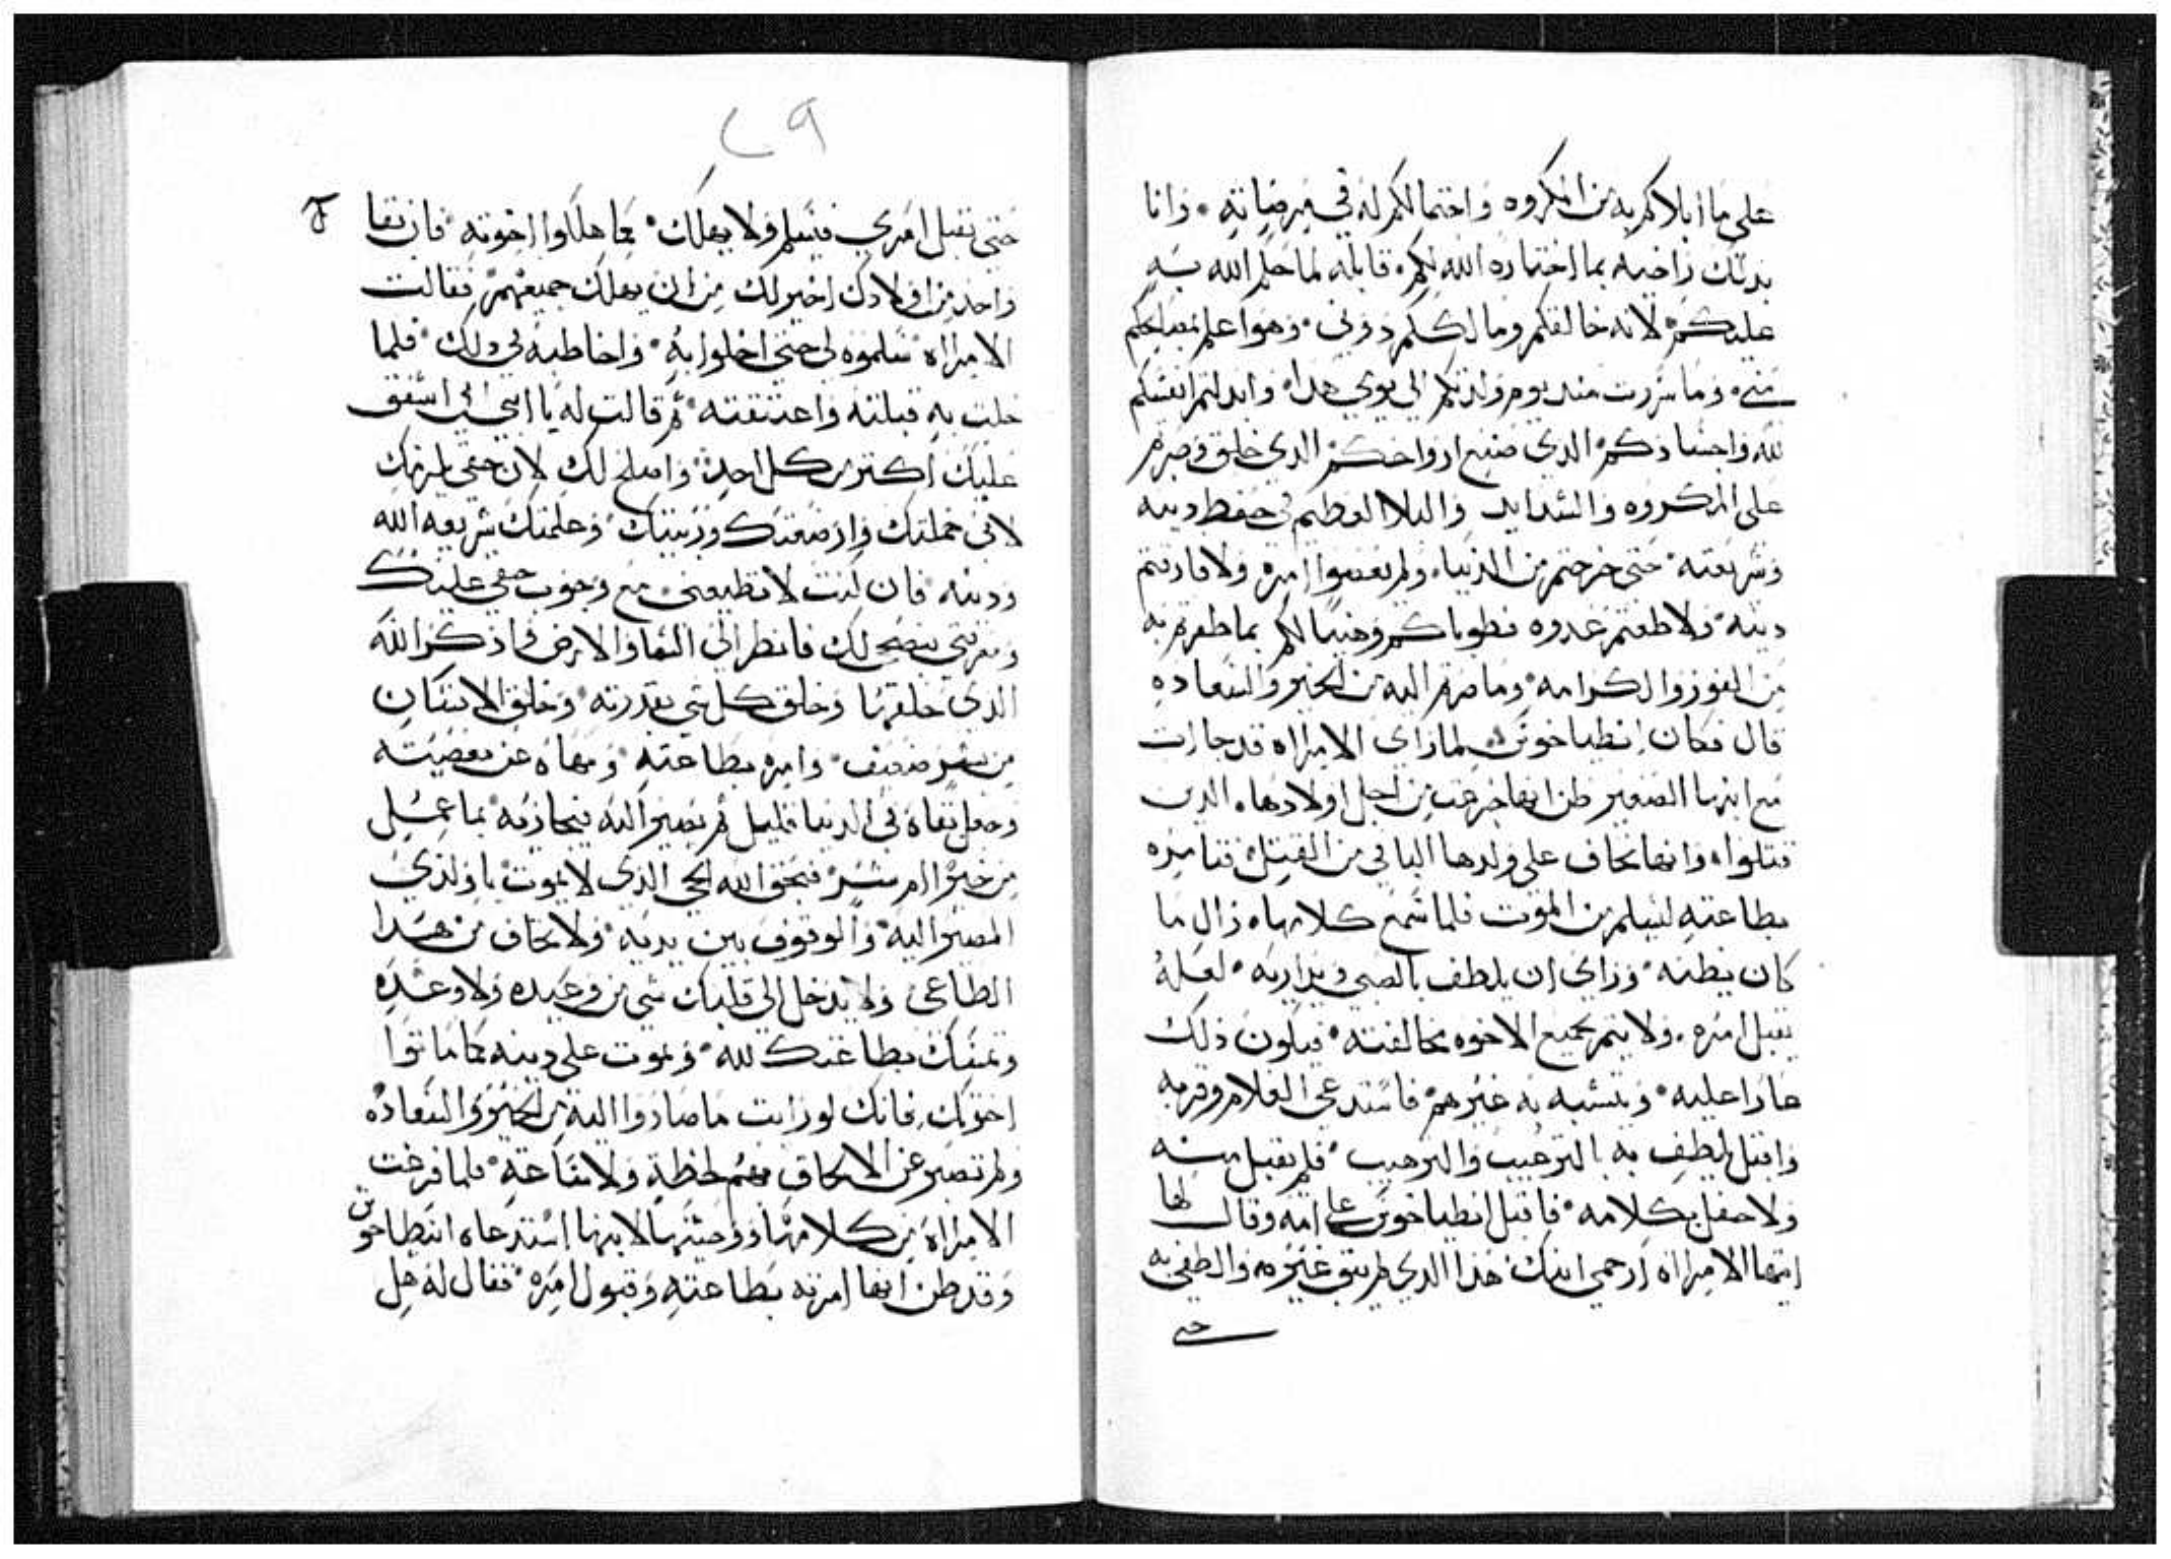 على ما ابلاكم به من المكروه واحتمالكم له في مرضاته وانا
بدلك راضيه بما اختاره الله لكم قابله لما حكم الله به
عليكم لانه خالقكم ومالككم دوني وهوا علم بمصالحكم
مني وما سررت مند يوم ولدتكم الي يومي هدا وابدلتم انفسكم
لله واجسادكم الدي صنع ارواحكم الدي خلق وصبرتم
على المكروه والشدايد والبلا العظيم في حفظ دينه
وشريعته حتى خرجتم من الدنيا ولم تعصوا امره ولا فارقتم
دينه ولا طعتم عدوه فطوباكم وهنيا لكم بما ظفرتم به
من الفوز والكرامه وما صرتم اليه من الخير والسعاده
قال فكان انطياخوس لما راى الامراه قد جات
مع ابنها الصغير ظن انها جزعت من اجل اولادها الدين
قتلوا وانها تخاف على ولدها الباقي من القتل فتامره
بطاعته ليسلم من الموت فلما سمع كلامها زال ما
كان يظنه وراى ان يلطف بالصبي ويداريه لعله
يقبل امره ولا يتم بجميع الاخوه مخالفته فيكون ذلك
عارا عليه ويتشبه به غيرهم فاستدعى الغلام وقربه
واقبل يلطف به بالترغيب والترهيب فلم يقبل منه
ولا حفل بكلامه فاقبل انطياخوس على امه وقال لها
ايتها الامراه ارحمي ابنك هذا الدي لم يبق غيره والطفي به
حتى
٢٩
حتى يقبل امري فيسلم ولا يهلك كما هلكوا اخوته فان بقا
واحد من اولادك اخير لك من ان يهلك جميعهم فقالت
الامراه سلموه لي حتى اخلوا به واخاطبه في دلك فلما
خلت به قبلته واعتنقته ثم قالت له يا ابني اني اشفق
عليك اكتر من كل احد وانصح لك لان حقي يلزمك
لاني حملتك وارضعتك وربيتك وعلمتك شريعه الله
ودينه فان كنت لا تطيعني مع وجوب حقي عليك
ومعرفتي بنصحي لك فانظر الى السما والارض واذكر الله
الدي خلقهما وخلق كل شي بقدرته وخلق الانسان
من بشر ضعيف وامره بطاعته ونهاه عن معصيته
وجعل بقاه في الدنيا قليل ثم يصير اليه فيجازيه بما عمل
من خير ام شر فبحق الله الحي الذي لا يموت يا ولدي
المصير اليه والوقوف بين يديه ولا تخاف من هدا
الطاغي ولا يدخل الى قلبك شي من وعيده ولا وعده
وتمسك بطاعتك لله وتموت على دينه كما ماتوا
اخوتك فانك لو رايت ما صاروا اليه من الخير والسعاده
ولم تصبر عن الالحاق بهم لحظه ولا ساعه فلما فرغت
الامراه من كلامها ووصيتها لابنها استدعاه انطياخوس
وقد ظن انها امرته بطاعته وقبول امره فقال له هل